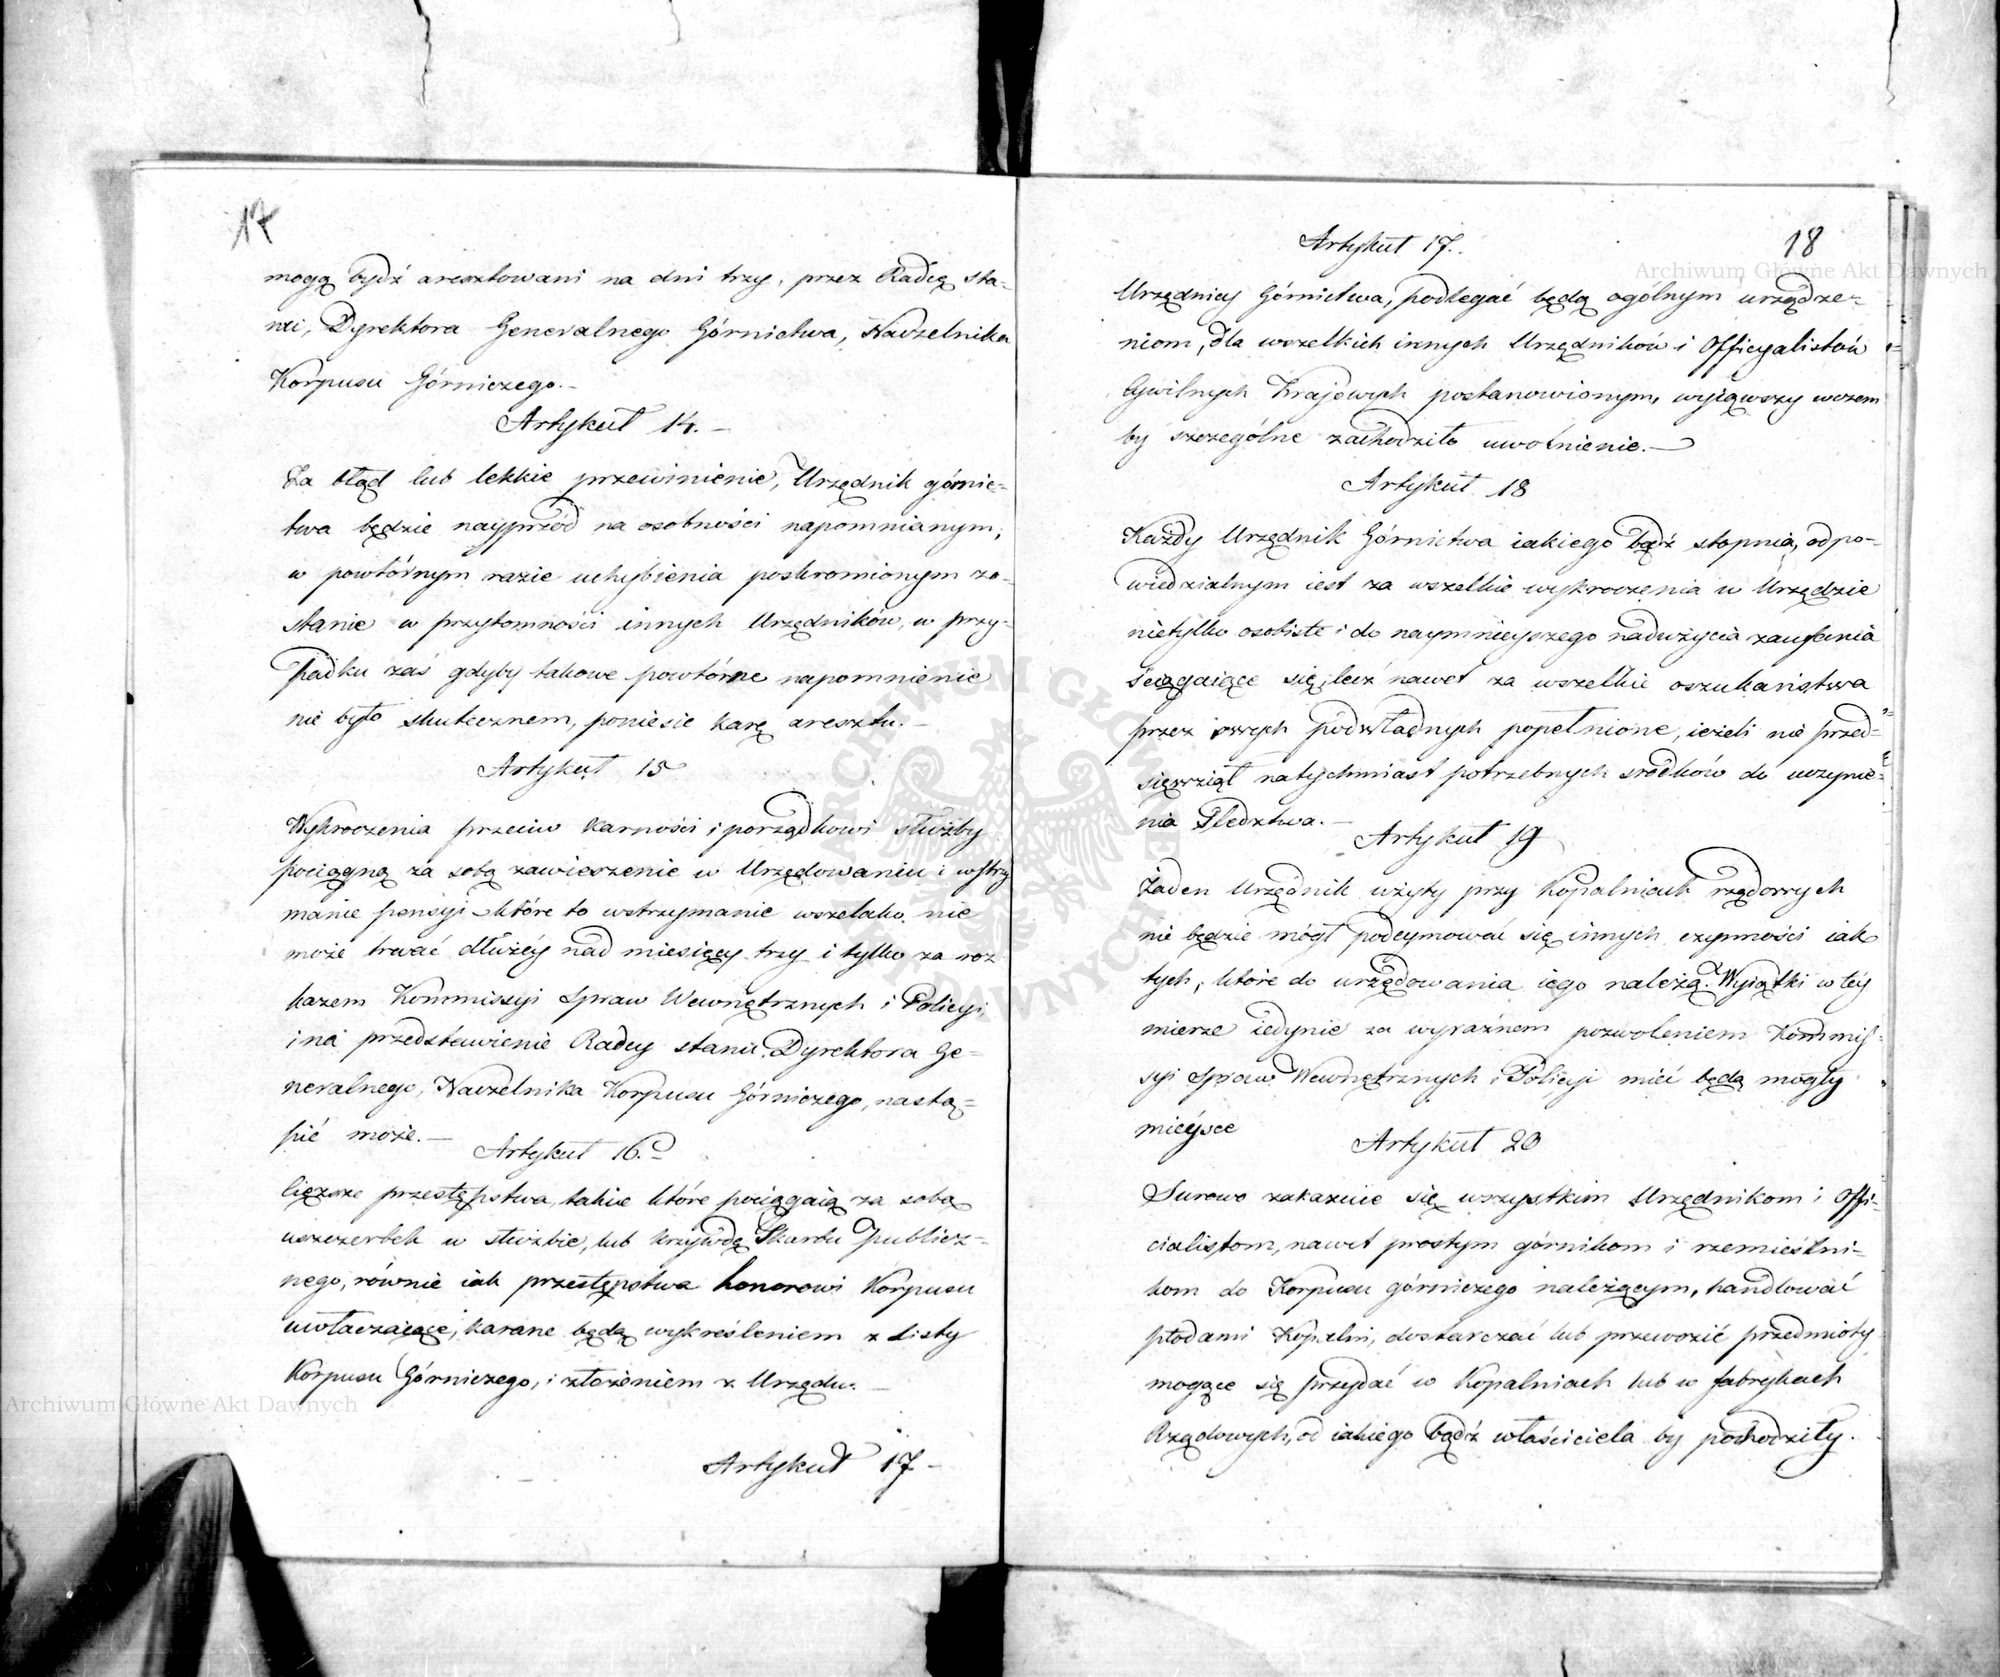 17
mogą bydź aresztowani na dni trzy, przez Radcę Sta-
nu, Dyrektora Generalnego Górnictwa, Naczelnika
Korpusu Górniczego. –
Artykuł 14. –
Za błąd lub lekkie przewinienie, Urzędnik górnic-
twa będzie nayprzód na osobności napomnianym,
w powtórnym razie uchybienia poskromionym zo-
stanie w przytomności innych Urzędników, w przy-
padku zaś gdyby takowe powtórne napomnienie
nie było skutecznem, poniesie karę aresztu. –
Artykuł 15
Wykroczenia przeciw karności i porządkowi służby
pociągną za sobą zawieszenie w Urzędowaniu i wstrzy
manie pensyi które to wstrzymanie wszelako nie
może trwać dłużéy nad miesięcy trzy i tylko za roz
kazem Kommissyi Spraw Wewnętrznych i Policyi
i na przedstawienie Radcy stanu, Dyrektora Ge-
neralnego, Naczelnika Korpusu Górniczego, nastą-
pić może. –
Artykuł 16.
Cięższe przestępstwa, takie które pociągaią za sobą
uszczerbek w służbie, lub krzywdę Skarbu publicz-
nego, równie iak przestępstwa honorowi Korpusu
uwłaczaiące, karane będą wykreśleniem z Listy
Korpusu Górniczego, i złożeniem z Urzędu. –
Artykuł 17 –
18
Artykuł 17.
Urzędnicy Górnictwa, podlegać będą ogólnym urządze-
niom, dla wszelkich innych Urzędników i Officyalistów
Cywilnych Krajowych postanowionym, wyiąwszy wczem
by szczególne zachodziło uwolnienie. –
Artykuł 18
Każdy Urzędnik Górnictwa iakiego bądź stopnia, odpo-
wiedzialnym iest za wszelkie wykroczenia w Urzędzie
nietylko osobiste i do naymnieyszego nadużycia zaufania
ściągaiące się, lecz nawet za wszelkie oszukaństwa
przez swych podwładnych popełnione, ieżeli nie przed-
sięwziął natychmiast potrzebnych srodków do uczynie-
nia Sledztwa. –
Artykuł 19
Żaden Urzędnik użyty przy Kopalniach rządowych
nie będzie mógł podeymować się innych czynności iak
tych, które do urzędowania iego należą. Wyiątki w téy
mierze iedynie za wyraźnem pozwoleniem Kommis-
syi Spraw Wewnętrznych i Policyi mieć będą mogły
mieysce
Artykuł 20
Surowo zakazuie się wszystkim Urzędnikom i Offi-
cialistom, nawet prostym górnikom i rzemieślni-
kom do Korpusu górniczego należącym, handlować
płodami Kopalni, dostarczać lub przewozić przedmioty
mogące się przydać w Kopalniach lub w fabrykach
Rządowych, od iakiego bądź właściciela by pochodziły.
Archiwum Główne Akt Dawnych
Archiwum Główne Akt Dawnych
ARCHIWUM GŁÓWNE AKT DAWNYCH